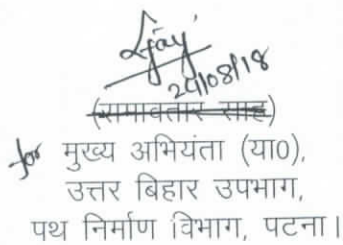 24/08/18
(रामावतार साह)
for मुख्य अभियंता (या०),
उत्तर बिहार उपभाग,
पथ निर्माण विभाग, पटना।